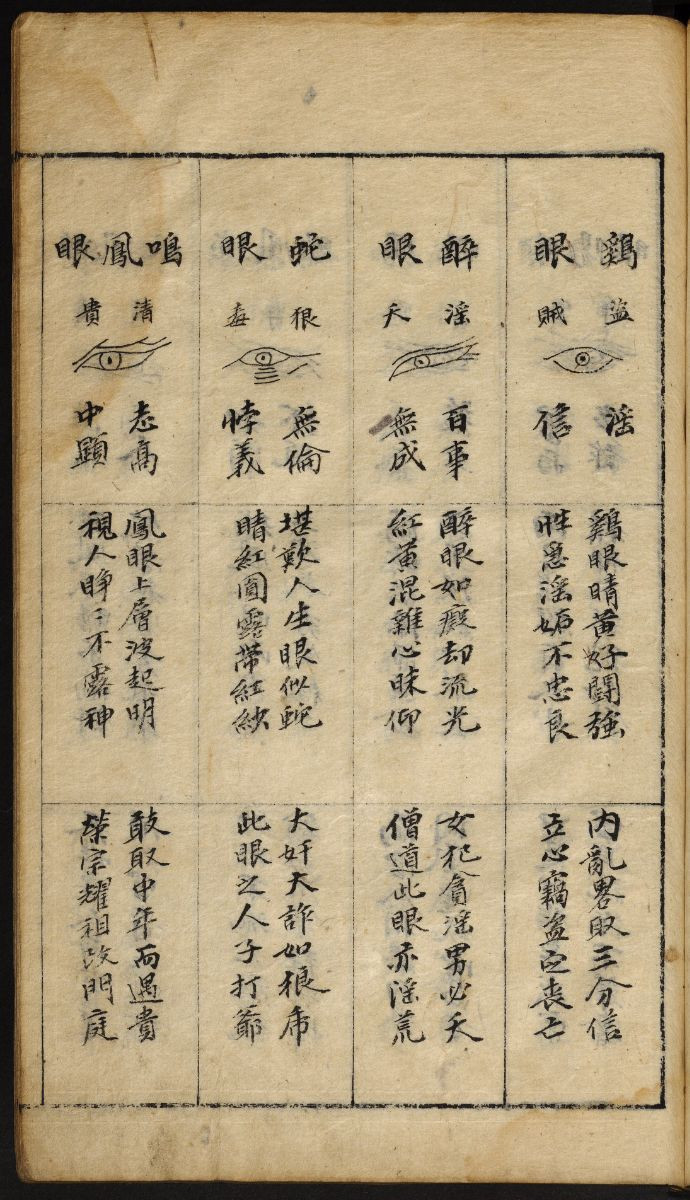 鷄眼
盜賊
淫
信
鷄眼睛黃好鬪強
性急淫妬不忠良
内亂畧取三分信
立心竊盜定喪亡
醉眼
淫夭
百事
無成
醉眼如癡却流光
紅黃混雜心昧仰
女犯貪淫男必夭
僧道此眼亦淫荒
蛇眼
狠毒
無倫
悖義
堪歎人生眼似蛇
睛紅圓露帶紅紗
大奸大詐如狼虎
此眼之人子打爺
鳴鳳眼
清貴
志高
中顯
鳳眼上層波起明
視人睜〻不露神
敢取中年而遇貴
榮宗耀祖改門庭